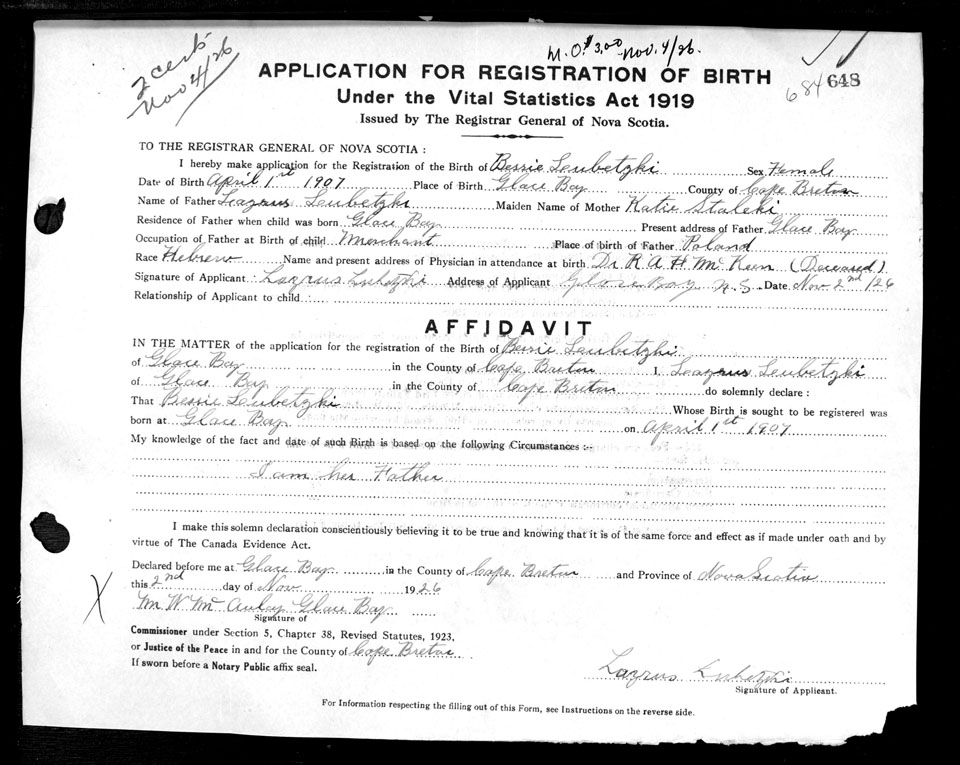 2 certs
Nov 4/26
M.O. $3.00 Nov. 4/26.
684 648
APPLICATION FOR REGISTRATION OF BIRTH
Under the Vital Statistics Act 1919
Issued by The Registrar General of Nova Scotia.
TO THE REGISTRAR GENERAL OF NOVA SCOTIA :
I hereby make application for the Registration of the Birth of Bessie Leubetzki Sex Female
Date of Birth April 1st 1907 Place of Birth Glace Bay County of Cape Breton
Name of Father Leazrus Leubetzki Maiden Name of Mother Katie Staleki
Residence of Father when child was born Glace Bay Present address of Father Glace Bay
Occupation of Father at Birth of child Merchant Place of birth of Father Poland
Race Hebrew Name and present address of Physician in attendance at birth Dr R A H McKeen (Deceased)
Signature of Applicant Lazrus Lubetzki Address of Applicant Glace Bay N.S. Date Nov 2nd /26
Relationship of Applicant to child
AFFIDAVIT
IN THE MATTER of the application for the registration of the Birth of Bessie Leubetzki
of Glace Bay in the County of Cape Breton I, Leazrus Leubetzki
of Glace Bay in the County of Cape Breton do solemnly declare :
That Bessie Leubetzki Whose Birth is sought to be registered was
born at Glace Bay on April 1st 1907
My knowledge of the fact and date of such Birth is based on the following Circumstances :-
I am her Father
I make this solemn declaration conscientiously believing it to be true and knowing that it is of the same force and effect as if made under oath and by
virtue of The Canada Evidence Act.
Declared before me at Glace Bay in the County of Cape Breton and Province of Nova Scotia
this 2nd day of Nov 1926
Wm W McAulay Glace Bay
Signature of
Commissioner under Section 5, Chapter 38, Revised Statutes, 1923,
or Justice of the Peace in and for the County of Cape Breton
If sworn before a Notary Public affix seal.
Lazrus Lubetzki
Signature of Applicant.
For Information respecting the filling out of this Form, see Instructions on the reverse side.